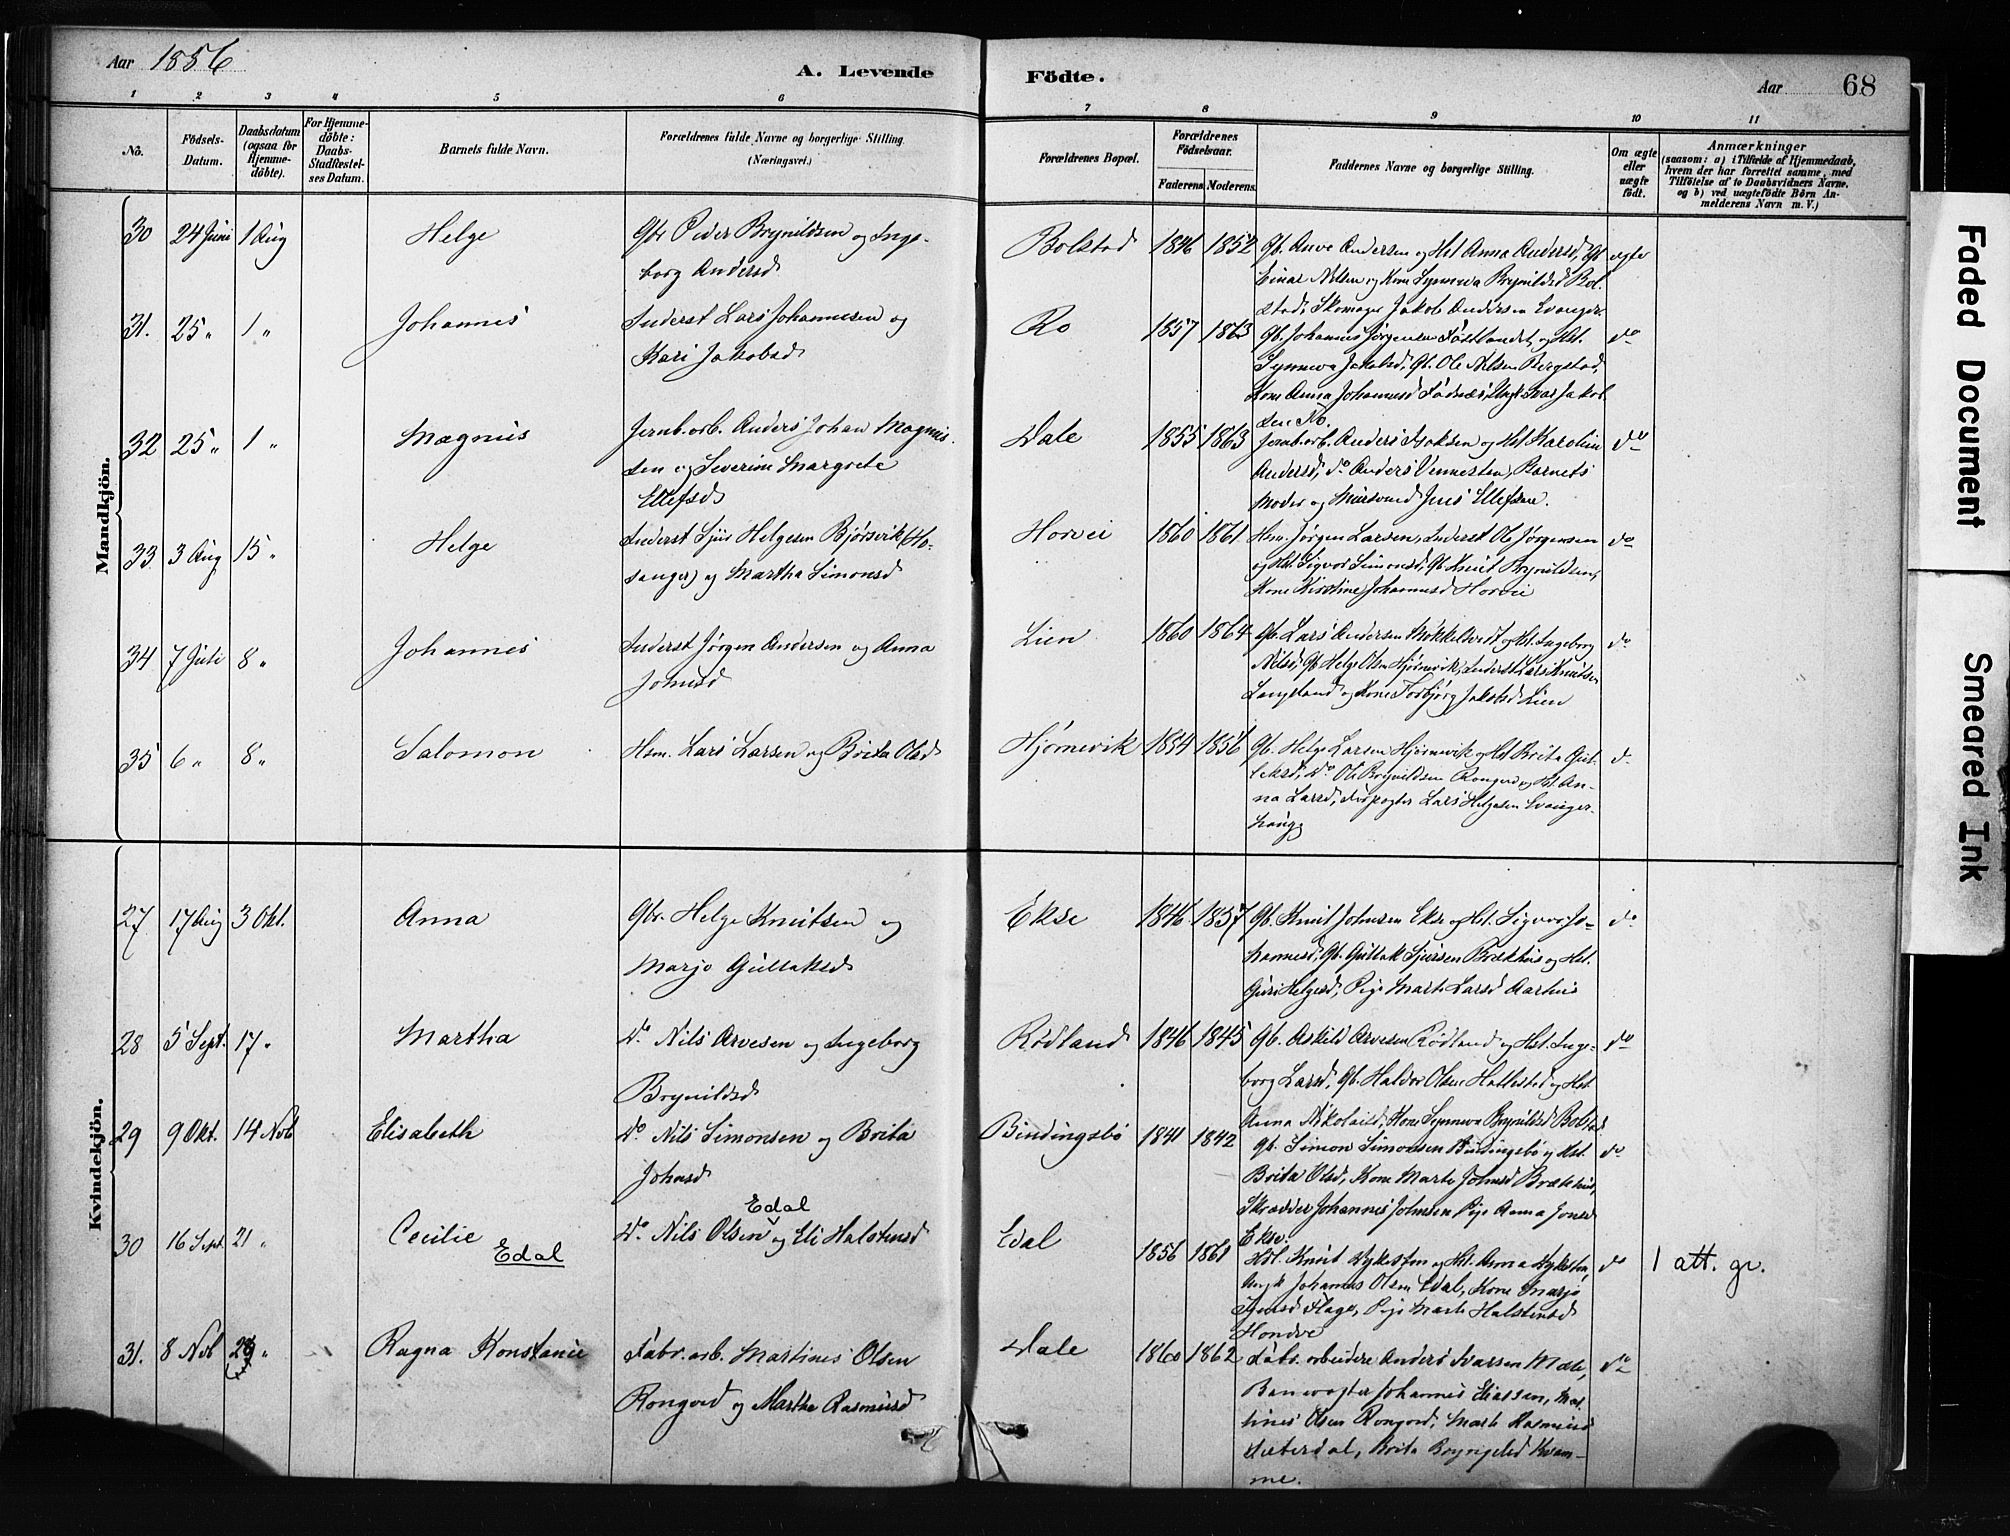 Aar 1886
A. Levende Födte.
Aar 68
1 2 3 4 5 6 7 8 9 10 11
No. Födsels-Datum. Daabsdatum (ogsaa for Hjemme-döbte). For Hjemme-döbte: Daabs-Stadfæstel-ses Datum. Barnets fulde Navn. Forældrenes fulde Navne og borgerlige Stilling. (Næringsvei.) Forældrenes Bopæl. Forældrenes Födselsaar. Faderens. Moderens. Faddernes Navne og borgerlige Stilling. Om ægte eller uægte födt. Anmærkninger (saasom: a) i Tilfælde af Hjemmedaab, hvem der har forrettet samme, med Tilföielse af to Daabsvidners Navne, og b) ved uægtefödte Börn An-melderens Navn m. V.)
Mandkjön.
30 24 Juni 1 Aug Helge Gbr Peder Brynildsen og Inge-
borg Andersd Bolstad 1846 1852 Gb. Arve Andersen og Hst Anna Andersd, Gb
Einar Nilsen og Kone Synneva Brynildsd Bol-
stad, Skomager Jakob Andersen Evanger ægte
31. 25 " 1 " Johannes Inderst Lars Johannesen og
Kari Jakobsd Ro 1857 1863 Gb. Johannes Jørgensen Fosslandet og Hst.
Synneva Jakobsd, Gb. Ole Nilsen Bergstad,
Kone Anna Johannesd Fadnæs, Ungk. Ivar Jakob
sen Ro. do
32 25 " 1 " Magnus Jernb.arb. Anders Johan Magnus-
sen og Severine Margrete
Ellefsd Dale 1855 1863 Jernb.arb. Anders Isaksen og Hst Karoline
Andersd, do Anders Vennesten, Barnets
Moder og Murmand Jens Ellefsen. do
33. 3 Aug 15 " Helge Inderst Sjur Helgesen Bjørsvik (Ho-
sanger) og Martha Simonsd Horvei 1860 1861 Hsm. Jørgen Larsen, Inderst Ole Jørgensen
og Hst Sigvor Simonsd, Gb. Knut Brynildsen,
Kone Kirstine Johannesd Horvei do
34 7 Juli 8 " Johannes Inderst Jørgen Andersen og Anna
Jonesd Lien 1860 1864 Gb. Lars Andersen Mokkelvedt og Hst. Ingeborg
Nilsd, Gb Helge Olsen Hjørnevik, Inderst Lars Knutsen
Langeland og Kone Torbjørg Jakobsd Lien do
35 6 " 8 " Salomon Hsm. Lars Larsen og Brita Olsd Hjørnevik 1854 1856 Gb. Helge Larsen Hjørnevik og Hst Brita Gut-
leksd, do Ole Brynildsen Rongved og Hst. An-
na Larsd, Lars Helgesen Evanger-
haug do
Kvindekjön.
27 17 Aug 3 Okt. Anna Gbr. Helge Knutsen og
Marjo Gullaksd Ekse 1846 1857 Gb. Knut Johnsen Ekse og Hst. Sigvor Jo-
hannesd, Gb. Gullak Sjursen Brækhus og Hst.
Guri Helgesd, Pige Marte Larsd Aarhus do
28 5 Sept. 17 " Martha Do Nils Arvesen og Ingeborg
Brynildsd Rødland 1846 1845 Gb. Askild Arvesen Rødland og Hst. Inge-
borg Larsd, Gb. Haldor Olsen Hallestad og Hst
Anna Nikolaisd, Kone Synneva Brynildsd Bolstad do
29 9 Okt. 14 Nov Elisabeth Do Nils Simonsen og Brita
Johnsd Bindingsbø 1841 1842 Gb. Simon Simonsen Bindingsbø og Hst.
Brita Olsd, Kone Marte Johnsd Brækhus,
Skrædder Johannes Johnsen, Pige Anna Jonsd
Ekse. do
30 16 Sept. 21 " Cecilie
Edal Do Nils Olsen Edal og Eli Halstensd Edal 1856 1861 Hst. Knut Nykesten og Hst. Anna Nykesten,
Ungk Johannes Olsen Edal, Kone Marjo
Sjursd Flage, Pige Marte Halstensd
Hondve do 1 att. gr.
31. 8 Nov 28 " Ragna Konstanie Fabr.arb. Martines Olsen
Rongved og Marthe Rasmusd Dale 1860 1862 Fabr.arbeidere Anders Ivarsen Mæle,
Banevogter Johannes Eliassen, Mar-
tines Olsen Rongved, Marte Rasmusd
Sæterdal, Brita Brynjelsd Kvam-
me. do
Faded Document
Smeared Ink